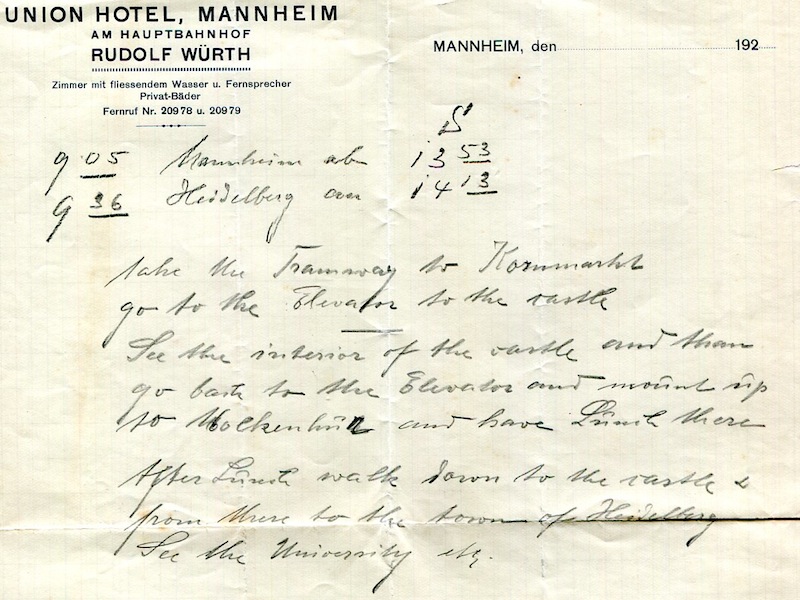 UNION HOTEL, MANNHEIM
AM HAUPTBAHNHOF
RUDOLF WÜRTH
Zimmer mit fliessendem Wasser u. Fernsprecher
Privat-Bäder
Fernruf Nr. 20978 u. 20979
MANNHEIM, den 192
S
9 05 Mannheim ab 13 53
9 36 Heidelberg an 14 13
take the Tramway to Kornmarkt
go to the Elevator to the castle
See the interior of the castle and than
go back to the Elevator and mount up
to Molkenkur and have Lunch there
After Lunch walk down to the castle &
from there to the town of Heidelberg
See the University etc.